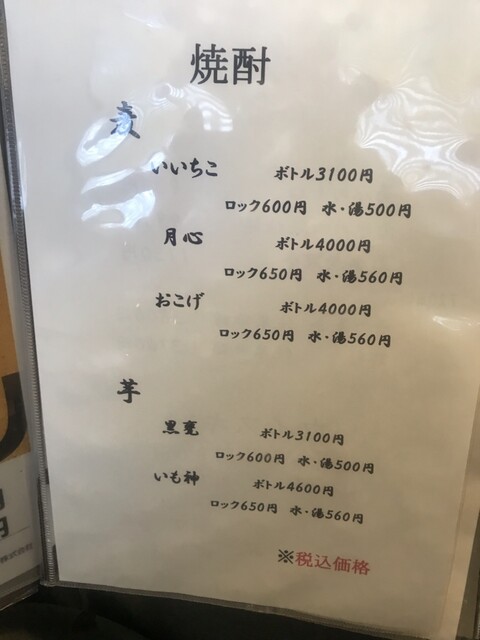 焼酎
麦
いいちこ ボトル3100円
ロック600円 水・湯500円
月心 ボトル4000円
ロック650円 水・湯560円
おこげ ボトル4000円
ロック650円 水・湯560円
芋
黒甕 ボトル3100円
ロック600円 水・湯500円
いも神 ボトル4600円
ロック650円 水・湯560円
※税込価格
円
株式会社